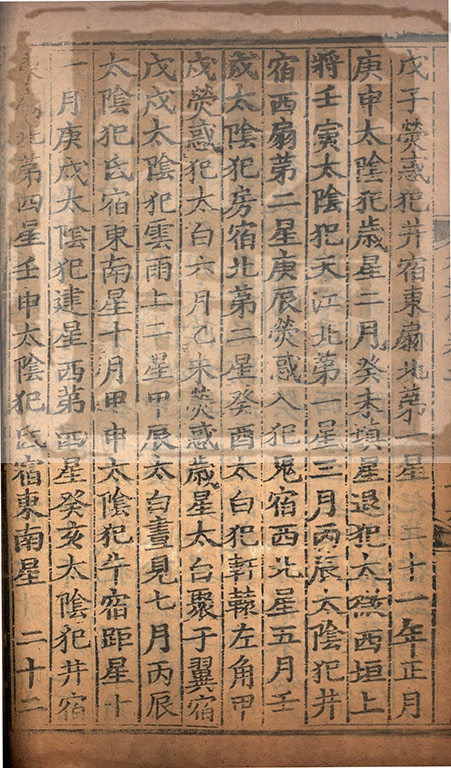 戊子熒惑犯井宿東扇北第一星　三十一年正月
庚申太陰犯歲星二月癸未填星退犯太微西垣上
將壬寅太陰犯天江北第一星三月丙辰太陰犯井
宿西扇第二星庚辰熒惑入犯鬼宿西北星五月壬
戌太陰犯房宿北第二星癸酉太白犯軒轅左角甲
戌熒惑犯太白六月乙未熒惑歲星太白聚于翼宿
戊戌太陰犯雲雨上二星甲辰太白晝見七月丙辰
太陰犯氐宿東南星十月甲申太陰犯牛宿距星十
一月庚戌太陰犯建星西第四星癸亥太陰犯井宿
東扇北第四星壬申太陰犯氐宿東南星　二十二